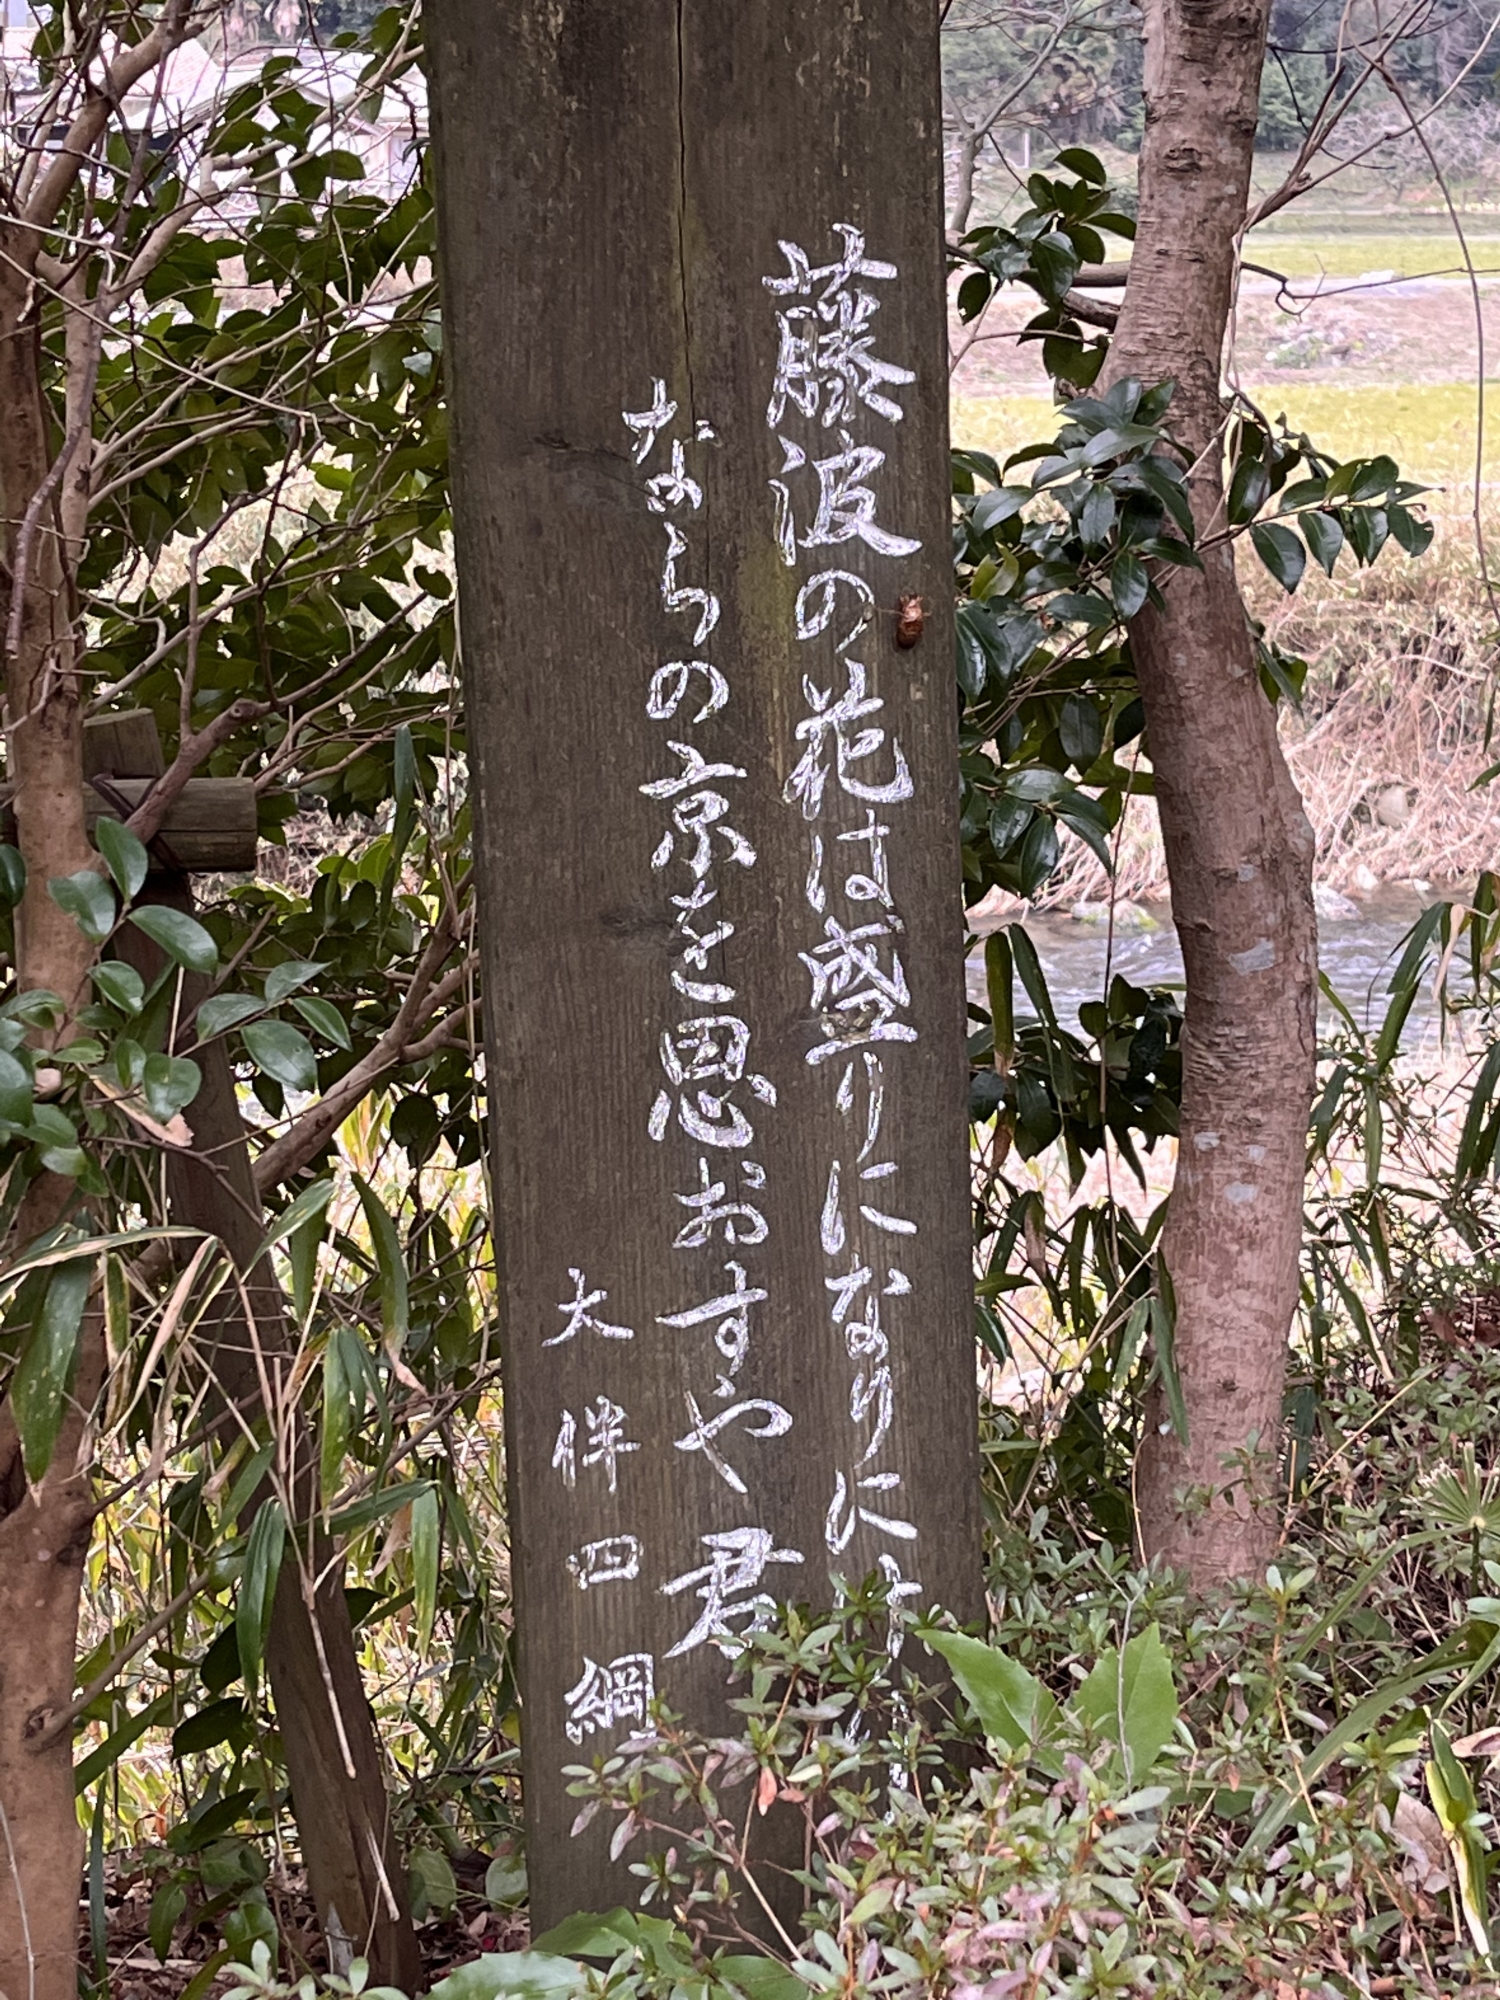 藤波の花は盛りになりにけり
ならの京を思おすや君
大伴四綱